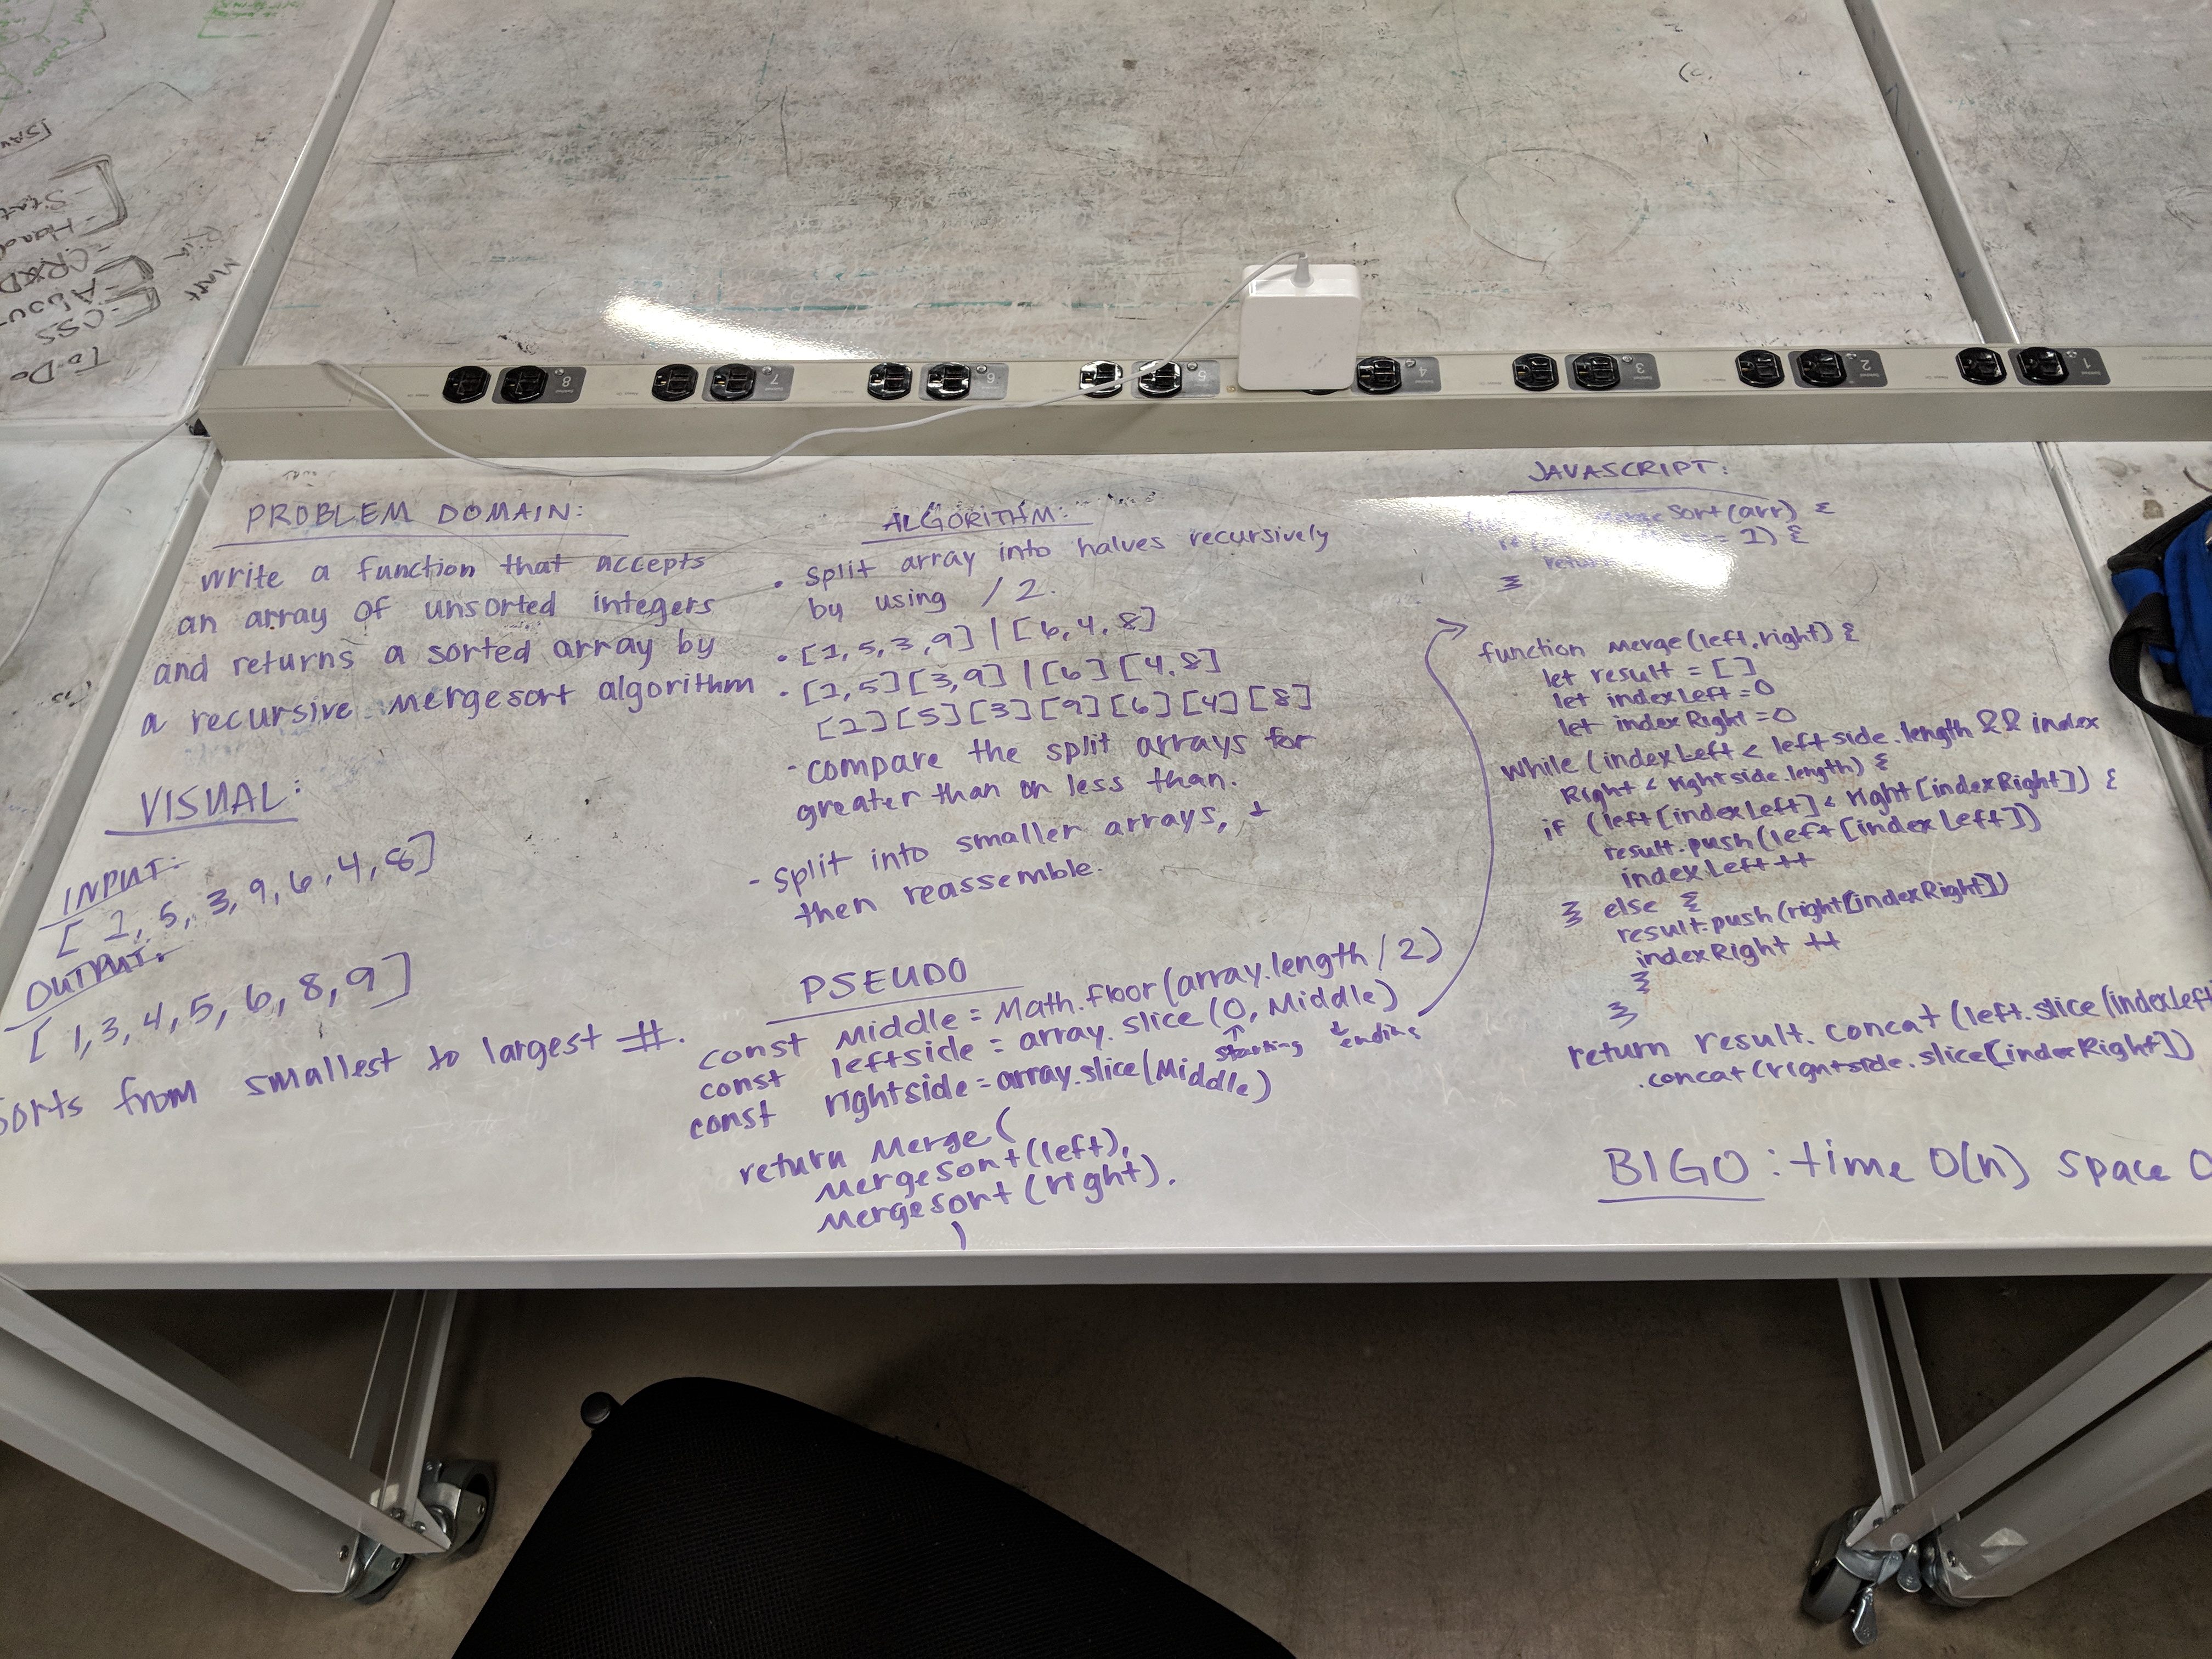 PROBLEM DOMAIN:
write a function that accepts
an array of unsorted integers
and returns a sorted array by
a recursive mergesort algorithm
VISUAL:
INPUT:
[ 1, 5, 3, 9, 6, 4, 8 ]
OUTPUT:
[ 1, 3, 4, 5, 6, 8, 9 ]
sorts from smallest to largest #.
ALGORITHM:
• split array into halves recursively
by using / 2.
• [1, 5, 3, 9] | [6, 4, 8]
• [1, 5] [3, 9] | [6] [4, 8]
[1] [5] [3] [9] [6] [4] [8]
- compare the split arrays for
greater than or less than.
- split into smaller arrays, +
then reassemble.
PSEUDO
const middle = Math.floor(array.length / 2)
const leftside = array.slice(0, Middle)
starting ending
const rightside = array.slice(Middle)
return Merge(
MergeSort(left),
MergeSort(right).
)
JAVASCRIPT:
Sort(arr) {
1) {
return
}
function Merge(left, right) {
let result = []
let indexLeft = 0
let indexRight = 0
while (indexLeft < leftside.length && index
Right < rightside.length) {
if (left[indexLeft] < right[indexRight]) {
result.push(left[indexLeft])
indexLeft ++
} else {
result.push(right[indexRight])
indexRight ++
}
}
return result.concat(left.slice(indexLeft
.concat(rightside.slice[indexRight])
BIGO: time O(n) space O
To-Do
CSS
Matt
8
7
6
5
4
3
2
1